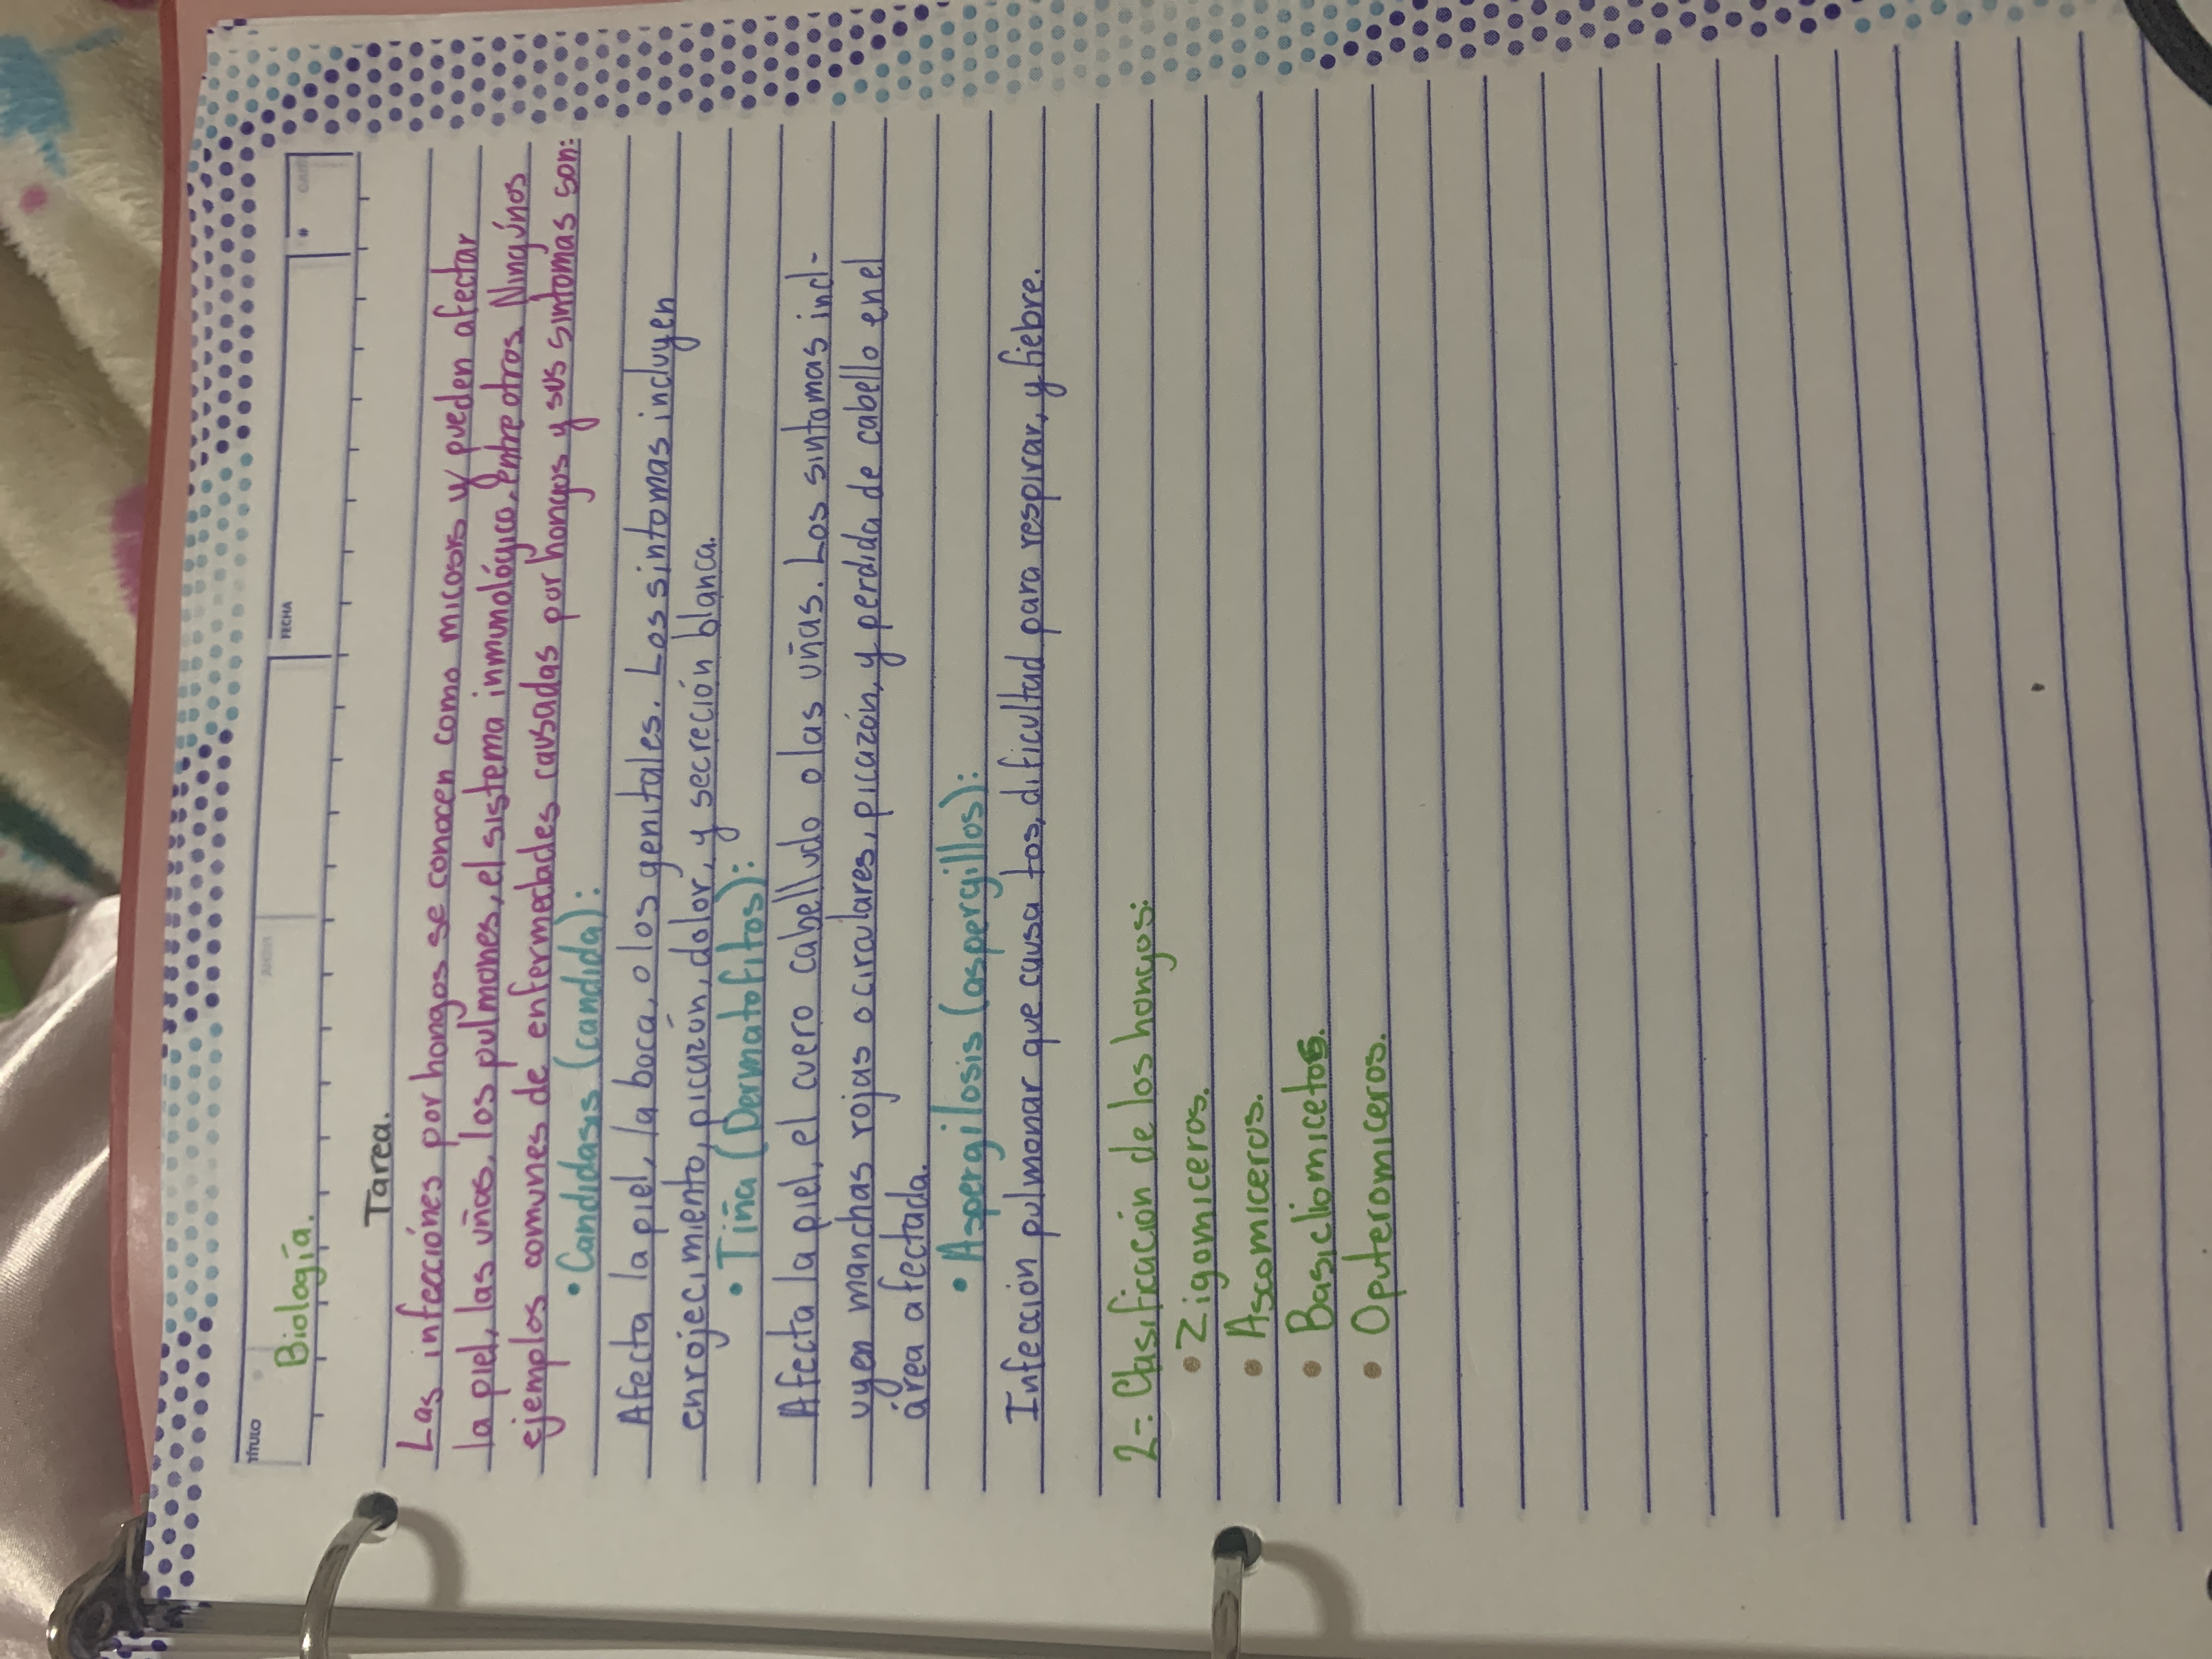 TÍTULO
Biología.
FECHA
Tarea.
Las infecciónes por hongos se conocen como micosis y pueden afectar
la piel, las uñas, los pulmones, el sistema inmunológico, entre otros. Ningúnos
ejemplos comunes de enfermedades causadas por hongos y sus sintomas son:
• Candidasis (candida):
Afecta la piel, la boca, o los genitales. Los sintomas incluyen
enrojecimiento, picazón, dolor, y secreción blanca.
• Tiña (Dermatofitos):
Afecta la piel, el cuero cabelludo o las uñas. Los sintomas incl-
uyen manchas rojas o circulares, picazón, y perdida de cabello en el
área afectada.
• Aspergilosis (aspergillos):
Infección pulmonar que causa tos, dificultad para respirar, y fiebre.
2-. Clasificación de los hongos:
• Zigomiceros.
• Ascomiceros.
• Basicliomicetos.
• Oputeromiceros.